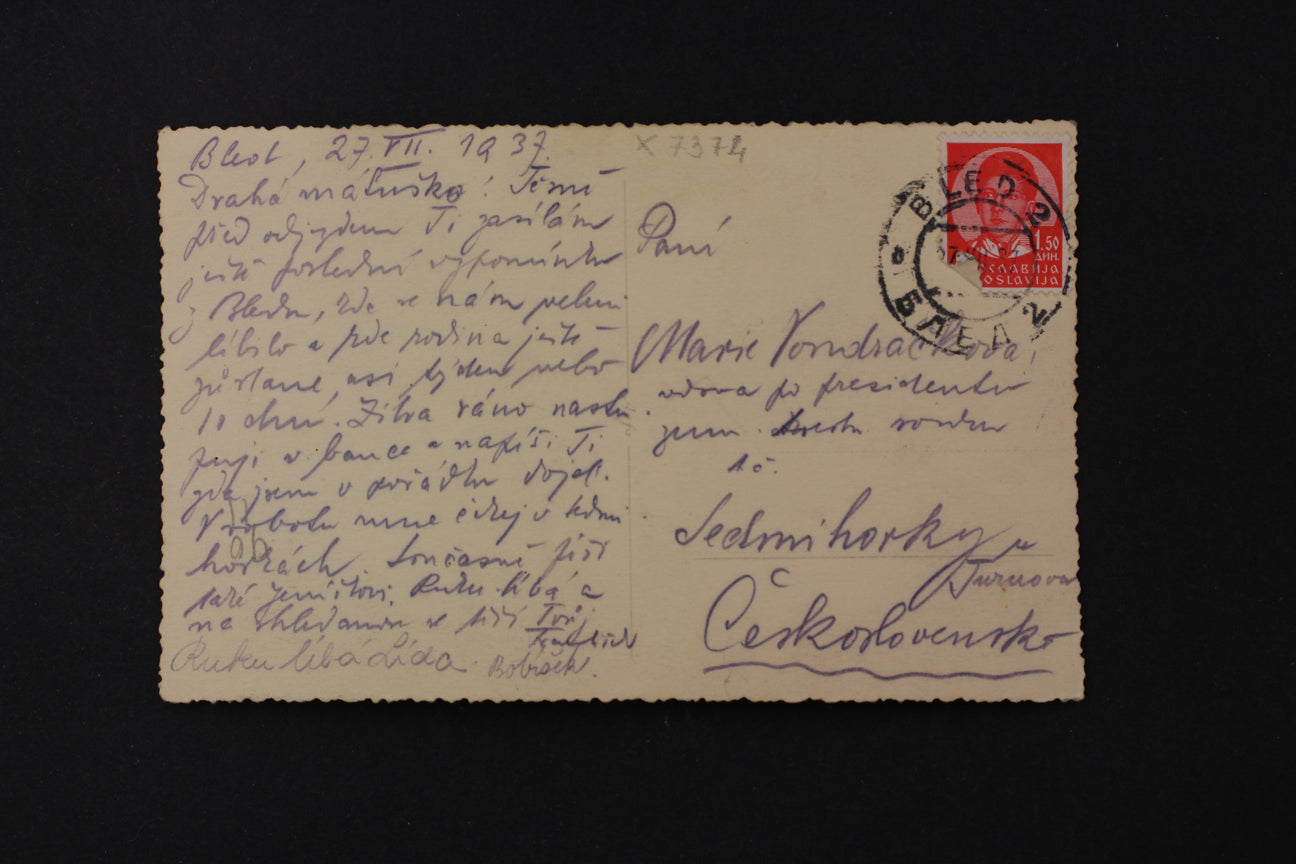 Bled, 27. VII. 1937.
Drahá matuško! Těsně
před odjezdem Ti zasílám
ještě poslední vzpomínku
z Bledu, kde se nám velmi
líbilo a kde rodina ještě
zůstane asi týden nebo
10 dnů. Zítra ráno nastu-
puji v bance a napíši Ti
jsem v pořádku dojel.
V sobotu mne čekej v Sedmi-
horkách. Současně píši
také Ruku líbá a
na shledanou se těší Tvůj
Ruku líbá Lída. Bobíšek.
X 7374
Paní
Marie Vondráčková,
vdova po presidentu
zem. soudu
t. č.
Sedmihorky u
Turnova
Československo
BLED 2
БЛЕД 2
1.50
ДИН.
JUGOSLAVIJA